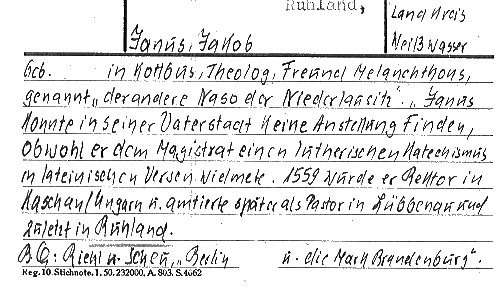 Ruhland,
Land Kreis
Janus, Jakob
Weißwasser
Geb. in Kottbus, Theolog, Freund Melanchthons,
genannt „der andere Naso der Niederlausitz". „Janus
konnte in seiner Vaterstadt keine Anstellung finden,
obwohl er dem Magistrat einen lutherischen Katechismus
in lateinischen Versen widmete. 1559 wurde er Rektor in
Kaschau/Ungarn u. amtierte später als Pastor in Lübbenau und
zuletzt in Ruhland.
B.G: Riehl u. Scheu, „Berlin u. die Mark Brandenburg".
Reg. 10. Stichnote. 1. 50. 232000. A. 803. S. 4662